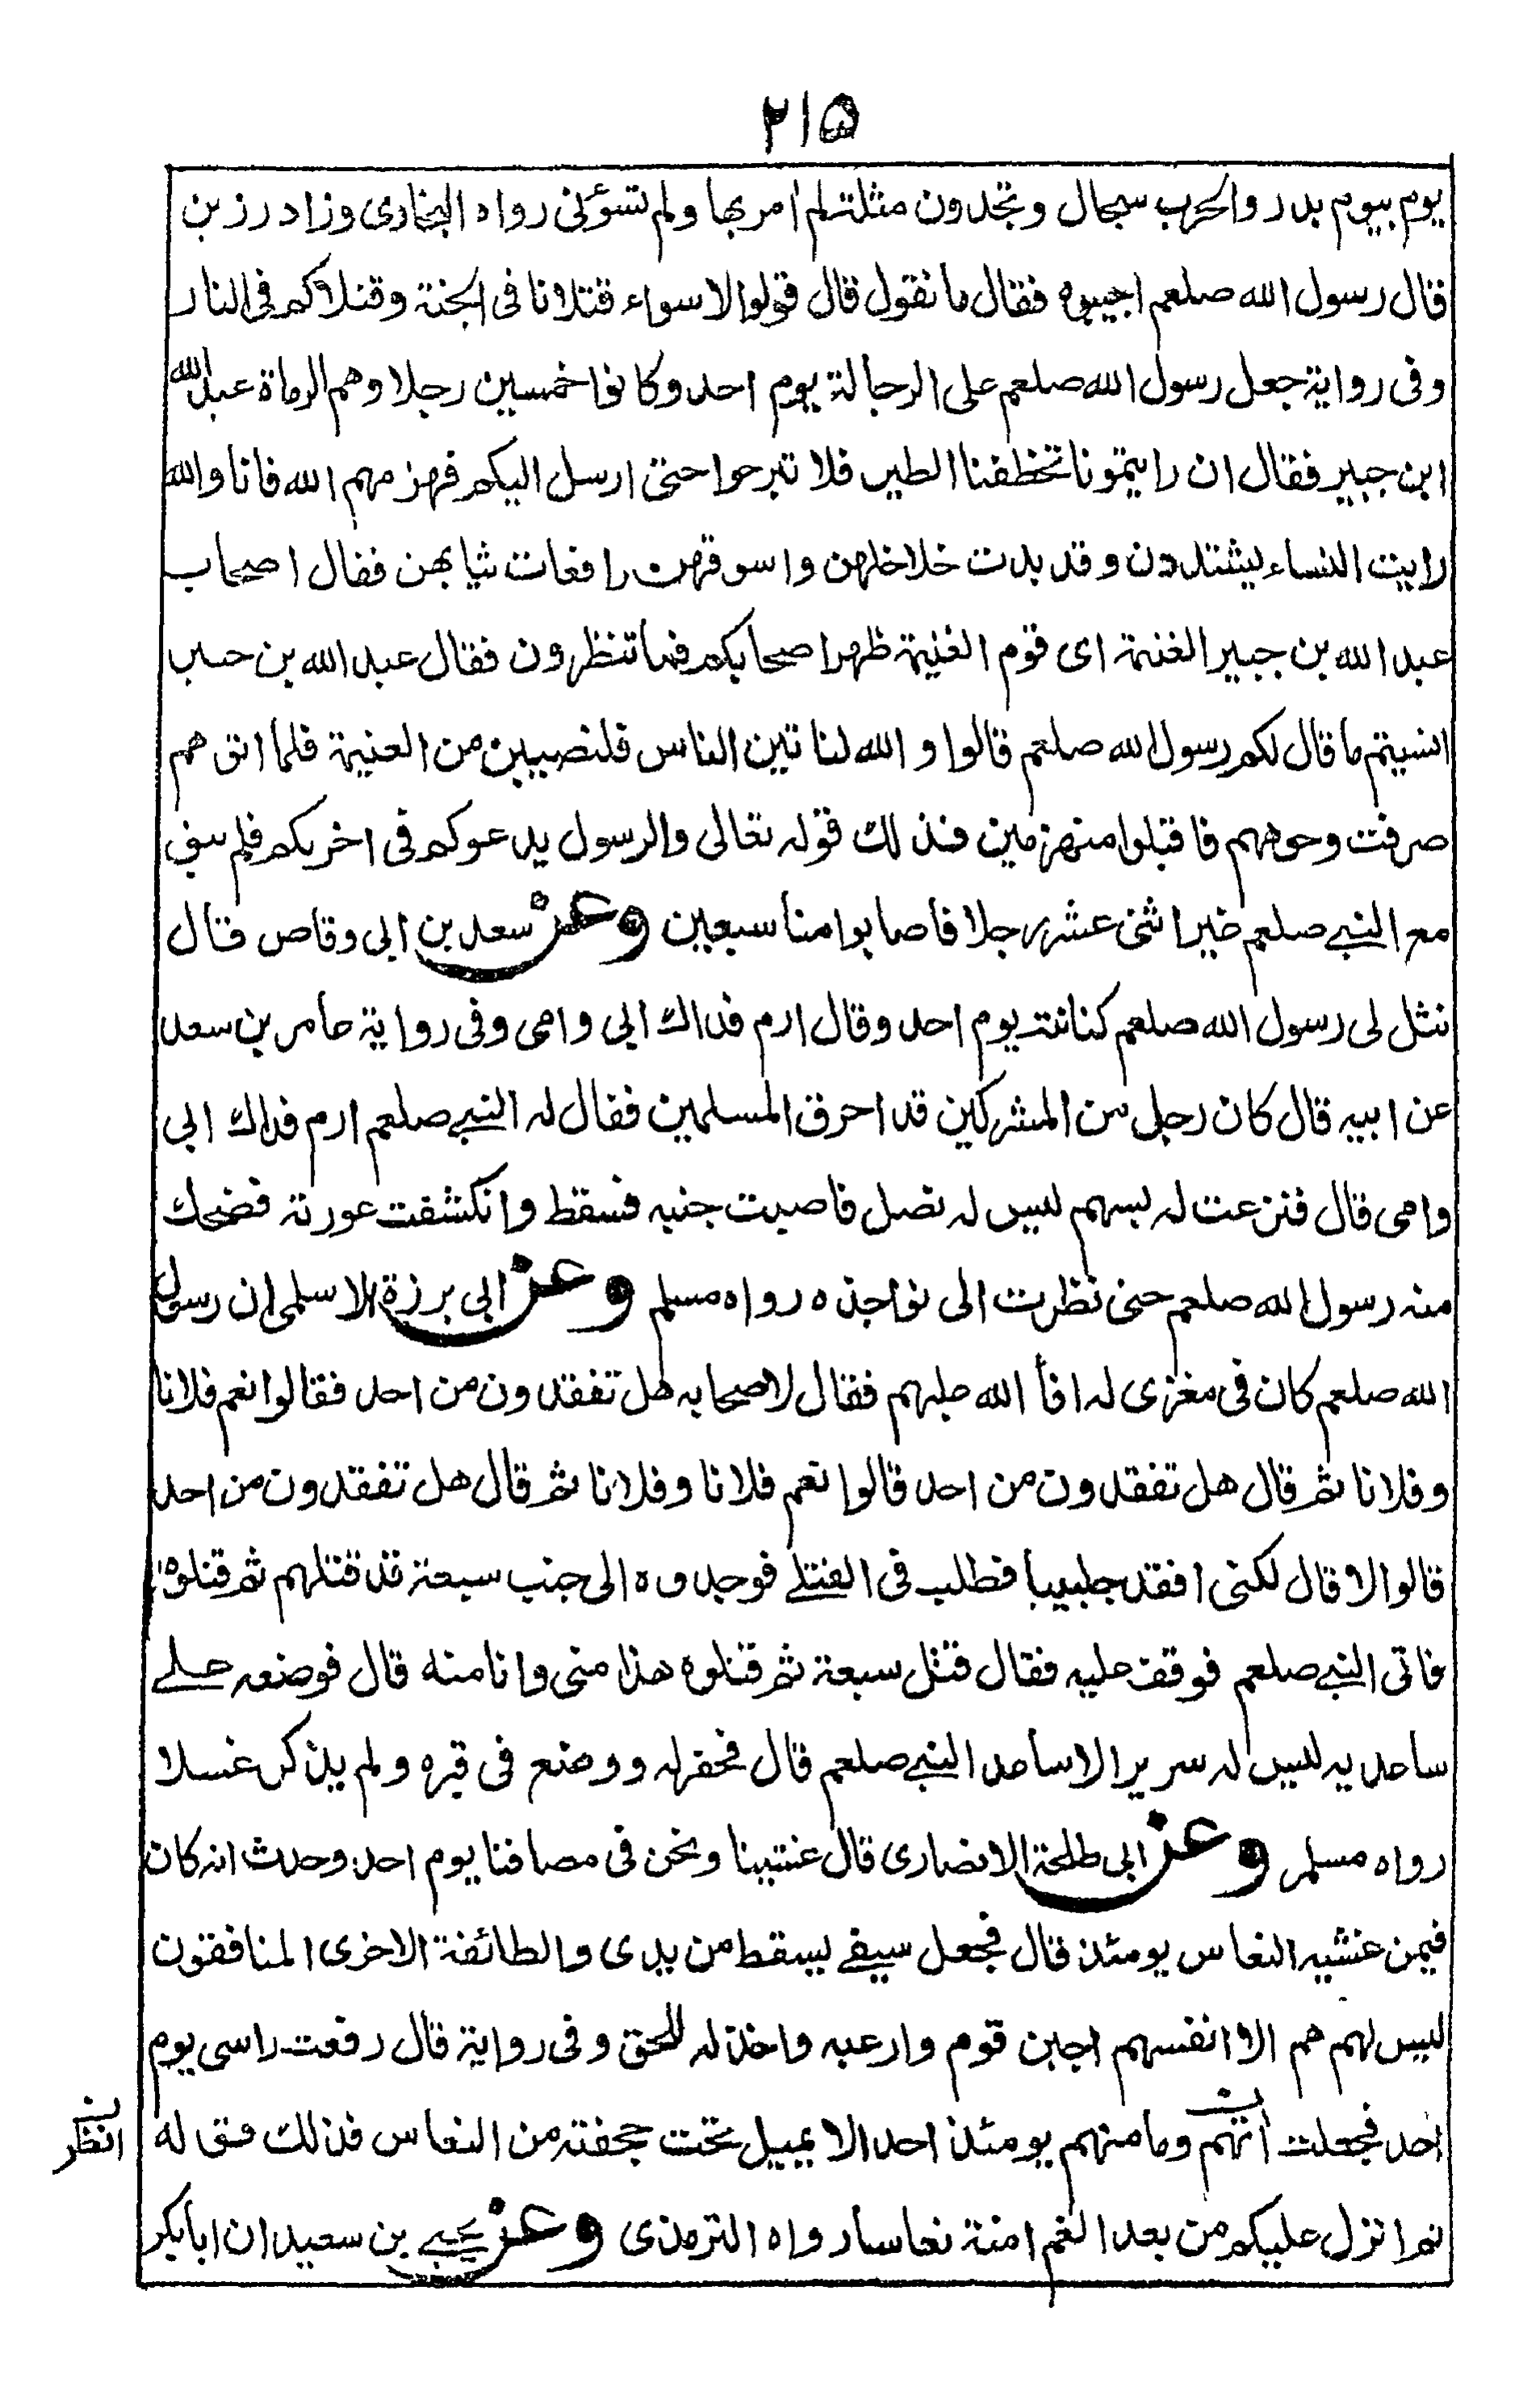 ٢١٥
يوم بيوم بدر والحرب سجال وتجدون مثلة لم امر بها ولم تسؤنى رواه البخارى وزاد رزين
قال رسول الله صلعم اجيبوه فقال ما نقول قال قولوا لا سواء قتلانا فى الجنة وقتلاكم فى النار
وفى رواية جعل رسول الله صلعم على الرجالة يوم احد وكانوا خمسين رجلا وهم الرماة عبد الله
ابن جبير فقال ان رايتمونا تخطفنا الطير فلا تبرحوا حتى ارسل اليكم فهزمهم الله فانا والله
رايت النساء يشتددن وقد بدت خلاخلهن واسوقهن رافعات ثيابهن فقال اصحاب
عبد الله بن جبير الغنيمة اى قوم الغنيمة ظهر اصحابكم فما تنظرون فقال عبد الله بن جبير
انسيتم ما قال لكم رسول الله صلعم قالوا والله لناتين الناس فلنصيبن من الغنيمة فلما اتوهم
صرفت وجوههم فاقبلوا منهزمين فذلك قوله تعالى والرسول يدعوكم فى اخريكم فلم يبق
مع النبى صلعم غير اثنى عشر رجلا فاصابوا منا سبعين وعن سعد بن ابى وقاص قال
نثل لى رسول الله صلعم كنانته يوم احد وقال ارم فداك ابى وامى وفى رواية عامر بن سعد
عن ابيه قال كان رجل من المشركين قد احرق المسلمين فقال له النبى صلعم ارم فداك ابى
وامى قال فنزعت له بسهم ليس له نصل فاصبت جنبه فسقط وانكشفت عورته فضحك
منه رسول الله صلعم حتى نظرت الى نواجذه رواه مسلم وعن ابى برزة الاسلمى ان رسول
الله صلعم كان فى مغزى له افأ الله عليهم فقال لاصحابه هل تفقدون من احد فقالوا نعم فلانا
وفلانا ثم قال هل تفقدون من احد قالوا نعم فلانا وفلانا ثم قال هل تفقدون من احد
قالوا لا قال لكنى افقد جليبيبا فطلب فى القتلى فوجدوه الى جنب سبعة قد قتلهم ثم قتلوه
فاتى النبى صلعم فوقف عليه فقال قتل سبعة ثم قتلوه هذا منى وانا منه قال فوضعه على
ساعديه ليس له سرير الا ساعد النبى صلعم قال فحفر له ووضع فى قبره ولم يذكر غسلا
رواه مسلم وعن ابى طلحة الانصارى قال غشينا ونحن فى مصافنا يوم احد وحدث انه كان
فيمن غشيه النعاس يومئذ قال فجعل سيفى يسقط من يدى والطائفة الاخرى المنافقون
ليس لهم هم الا انفسهم اجبن قوم وارعبه واخذله للحق وفى رواية قال رفعت راسى يوم
احد فجعلت اتهم وما منهم يومئذ احد الا يميل تحت حجفته من النعاس فذلك قوله
ثم انزل عليكم من بعد الغم امنة نعاسا رواه الترمذى وعن يحيى بن سعيد ان ابابكر
انظر